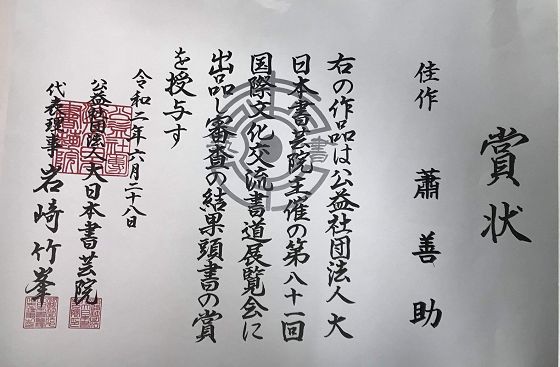 賞状
佳作 蕭善助
右の作品は公益社団法人大
日本書芸院主催の第八十一回
国際文化交流書道展覧会に
出品し審査の結果頭書の賞
を授与す
令和二年六月二十八日
公益社団法人大日本書芸院
代表理事 岩崎竹峯